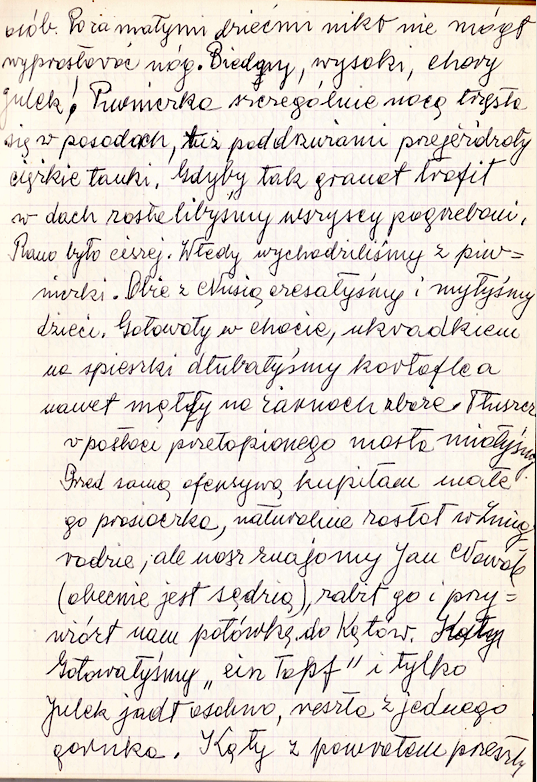 osób. Poza małymi dziećmi nikt nie mógł
wyprostować nóg. Biedny, wysoki, chory
Julek! Piwniczka szczególnie nocą trzęsła
się w posadach, tuż pod drzwiami przejeżdżały
ciężkie tanki. Gdyby tak granat trafił
w dach zostalibyśmy wszyscy pogrzebani.
Rano było ciszej. Wtedy wychodziliśmy z piw=
niczki. Obie z Nusią czesałyśmy i myłyśmy
dzieci. Gotowały w chacie, ukradkiem
na śpieszki dłubałyśmy kartofle a
nawet mełły na żarnach zboże. Tłuszcz
w postaci przetopionego masła miałyśmy.
Przed samą ofenzywą kupiłam małe
go prosiaczka, naturalnie został w Żmig
rodzie, ale nasz znajomy Jan Nowak
(obecnie jest sędzią), zabił go i przy=
wiózł nam połówkę do Kątów.
Gotowałyśmy „ein Topf" i tylko
Julek jadł osobno, reszta z jednego
garnka. Kąty z powrotem przeszły